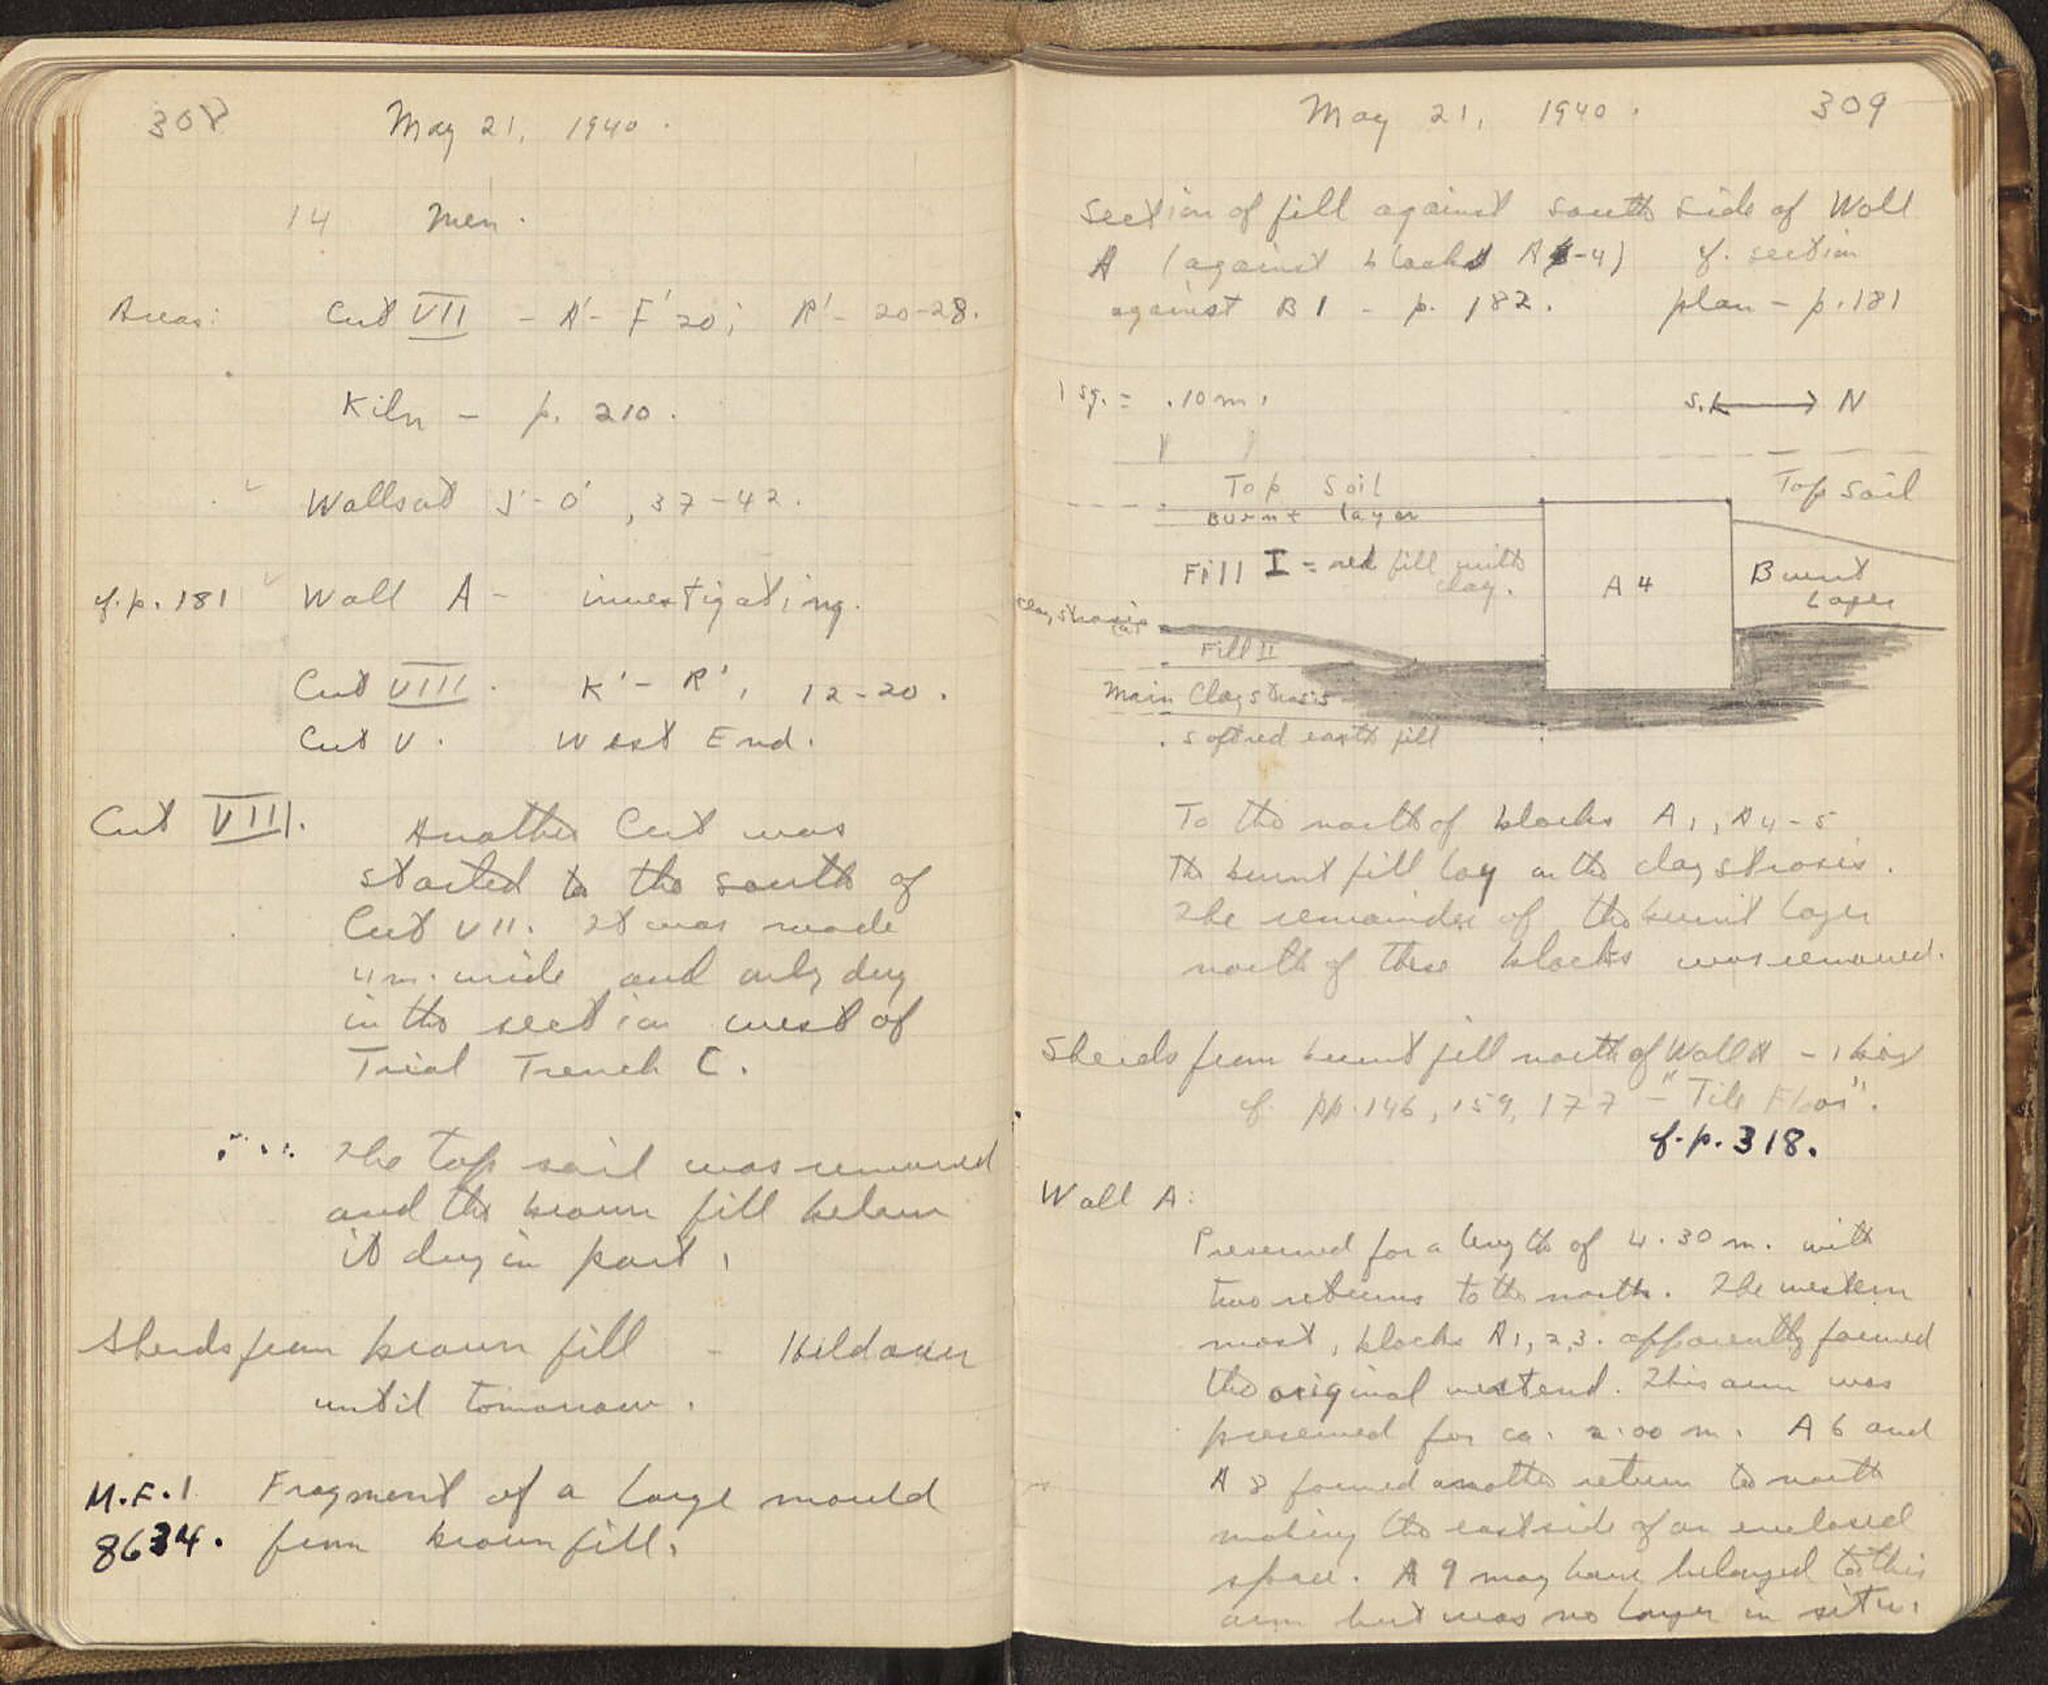 308
May 21, 1940.
14 Men.
Areas: Cut VII - A'- F' 20; R'- 20-28.
Kiln - p. 210.
Walls at J'- O', 37-42.
cf. p. 181 Wall A - investigating.
Cut VIII. K'- R', 12-20.
Cut V. West End.
Cut VIII. Another Cut was
started to the south of
Cut VII. It was made
4 m. wide and only dug
in the section west of
Trial Trench C.
The top soil was removed
and the brown fill below
it dug in part.
Sherds from brown fill - Held over
until tomorrow.
M.F.1 Fragment of a large mould
8634. from brown fill.
May 21, 1940. 309
Section of fill against south side of Wall
A (against blocks A -4) cf. section
against B 1 - p. 182. plan - p. 181
1 sq. = .10 m.
S. N
Top Soil
Top Soil
Burnt layer
Fill I = red fill with
clay.
A 4
Burnt
Layer
clay strosis
Fill II
Main Clay strosis
soft red earth fill
To the north of blocks A1, A4-5
the burnt fill lay on the clay strosis.
The remainder of the burnt layer
north of these blocks was removed.
Sherds from burnt fill north of Wall A - 1 box
cf. pp. 146, 159, 177 - "Tile Floor".
cf. p. 318.
Wall A:
Preserved for a length of 4.30 m. with
two returns to the north. The western
most, blocks A1, 2, 3. apparently formed
the original west end. This arm was
preserved for ca. 2.00 m. A 6 and
A 8 formed another return to north
making the east side of an enclosed
space. A 9 may have belonged to this
arm but was no longer in situ.